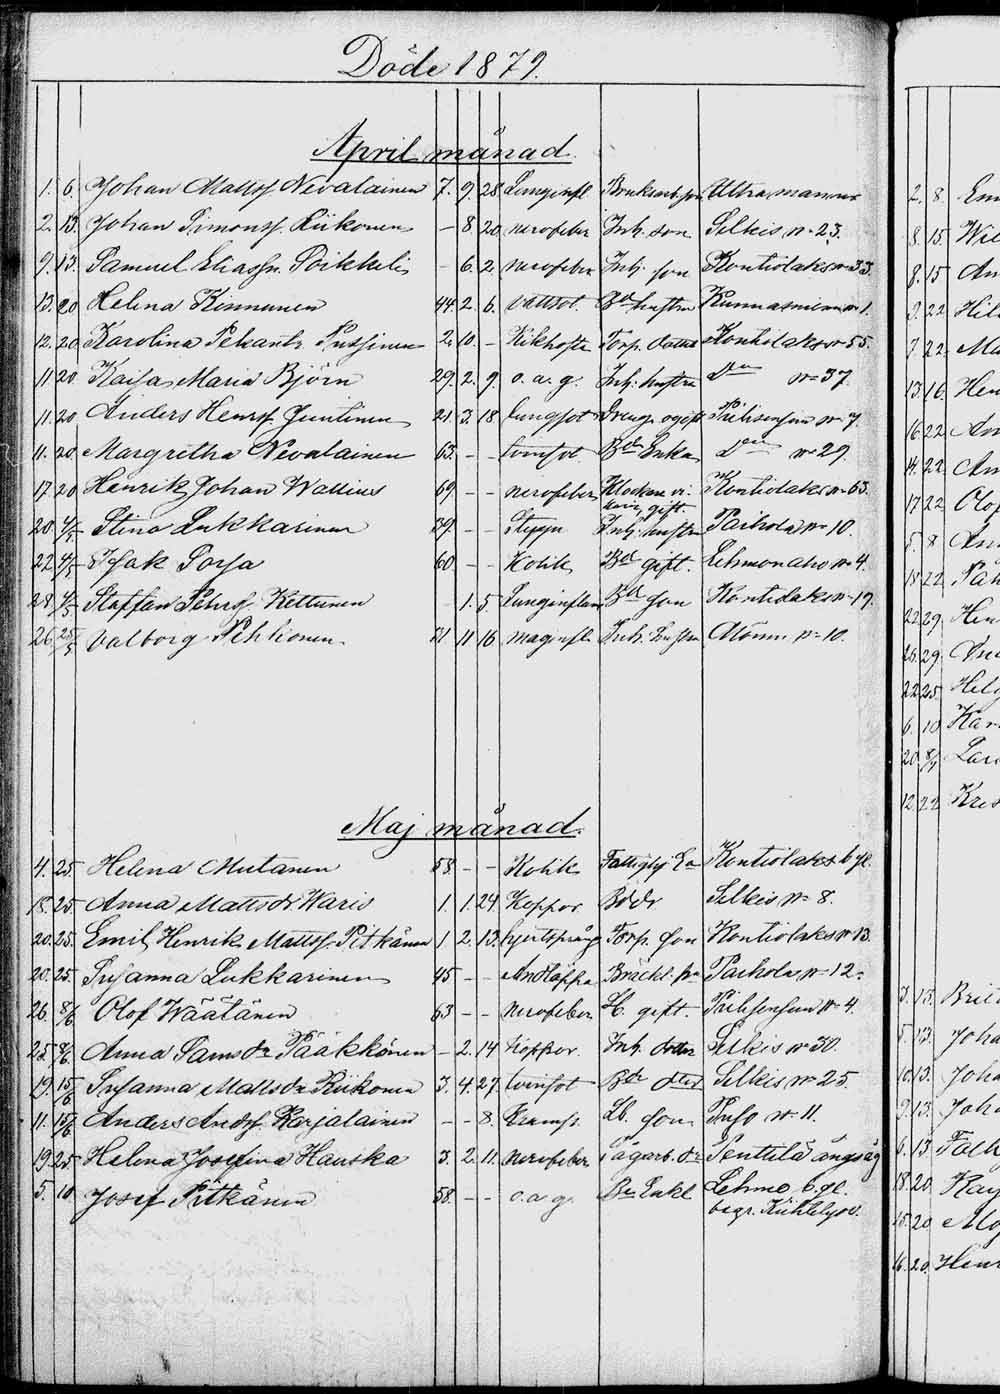 Döde 1879.
April månad.
1. 6. Johan Mattss. Nevalainen 7. 9. 28 Lunginfl. Utra
2. 13. Johan Simonss. Riikonen — 8. 20. nervfeber Inh. son Selkis n=23.
9. 13. Samuel Eliassn. Poikkeli — 6. 2. nervfeber Inh. son Kontiolaks n=33.
13. 20 Helena Kinnunen 44. 2. 6. vattsot. Bde hustru n=1.
12. 20 Karolina Pekantr. Pussinen 2. 10. — Kikhosta Torp. dotter Kontiolaks n=55.
11 20. Kaisa Maria Björn 29. 2. 9. o.a.g. Inh. hustru Do n=37.
11. 20 Anders Henrss. Juntinen 21. 3. 18 lungsot Dreng ogift n=7.
11. 20. Margretha Nevalainen 63. — — tvinsot Bde Enka Do n=29.
17. 20 Henrik Johan Wallius 69. — — nervfeber Klockare vi-
karie, gift. Kontiolaks n=63.
20. 4/5 Stina Lukkarinen 39. — — Inh. hustru Paihola n=10.
22. 4/5 Isak Sorsa 60. — — Kolik Bde gift. Lehmonaho n=4.
28. 4/5 Staffan Pehrss. Kettunen 1. 5. Lunginflam Bde son Kontiolaks n=17.
26. 25/5 Valborg Pehkonen. 51 11 16 maginfl. Inh. Hustru Mönni n=10.
Maj månad.
4. 25. Helena Mutanen 58 — — Kolik Fattighj. Ea Kontiolaks bgl.
18. 25. Anna Mattsdr. Waris 1. 1. 24. Koppor Bdr Selkis n=8.
20. 25. Emil Henrik Mattss. Pitkänen 1 2. 13. hjertsprång Torp. son Kontiolaks n=13.
20. 25. Susanna Lukkarinen 45 — — Andtäppa Paihola n=12.
26. 8/6 Olof Wäätänen 63 — — nervfeber gift. n=4.
25. 8/6 Anna Samsdr Pääkkönen — 2. 14 koppor. Inh. dotter Selkis n=30.
19. 15/6 Susanna Mattsdr Riikonen 3. 4. 27. tvinsot Bde dter Selkis n=25.
11. 15/6 Anders Andss. Karjalainen — — 8. Kramp. Lb. son Puso n=11.
19. 25. Helena Josefina Hauska 3. 2. 11. nervfeber Sågarb. dr Penttilä ångsåg
5. 10 Josef Pitkänen 58. — — o.a.g. Be Enkl Lehmo b.gl.
begr. Kiihtelysv.
2. 8. Em
8. 15. Wil
8. 15 An
9. 22 Hil
7. 22. Ma
13. 16. Hen
16. 22 An
14. 22. An
17 22 Olof
5. 8 An
18. 22. Päh
22. 29 Hen
26. 29. And
22. 25. Hel
6. 10 Kar
20. 8/7 Lar
12. 22 Kris
3. 13. Brit
5. 13. Joha
10. 13. Joha
9. 13. Joha
6. 13 Falk
18. 20 Kay
15. 20 Mo
16. 20. Henr